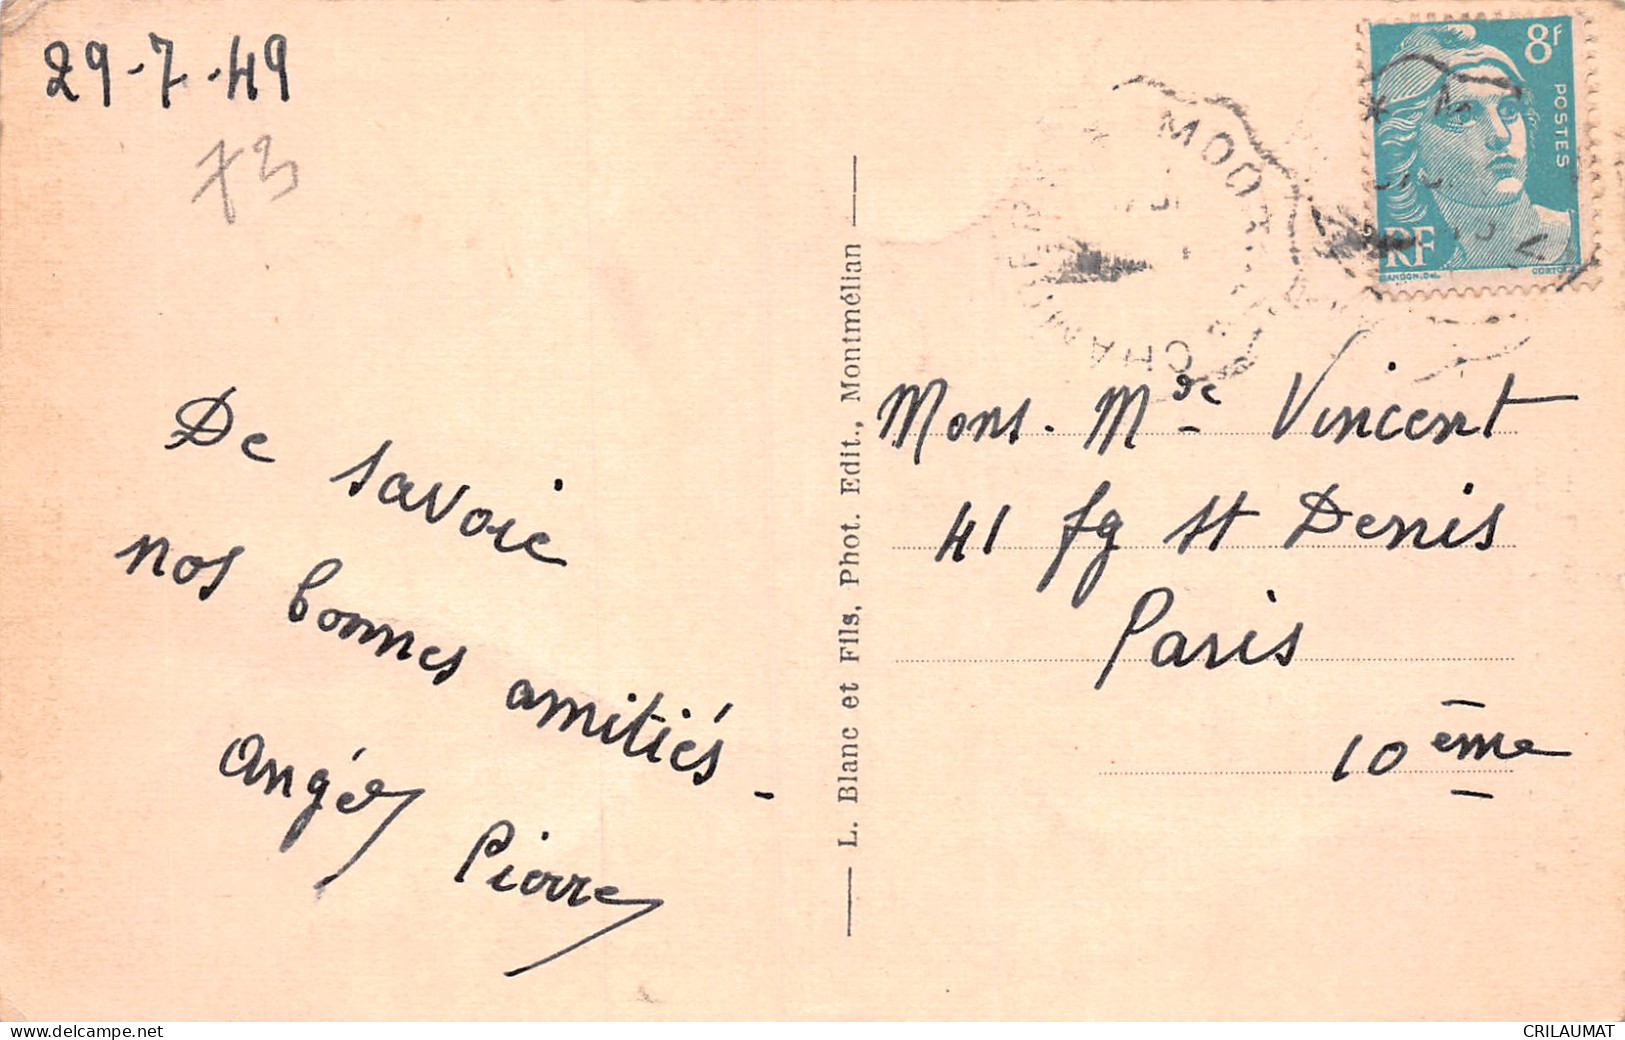 29-7-49
73
De Savoie
nos bonnes amitiés -
Angèe
Pierre
L. Blanc et Fils, Phot. Edit., Montmélian
8F
POSTES
RF
GANDON.DEL
CORTOT
* MOD
CHAMBERY
* M
Mons. Mde Vincent
41 fg St Denis
Paris
10ème
delcampe.net
CRILAUMAT